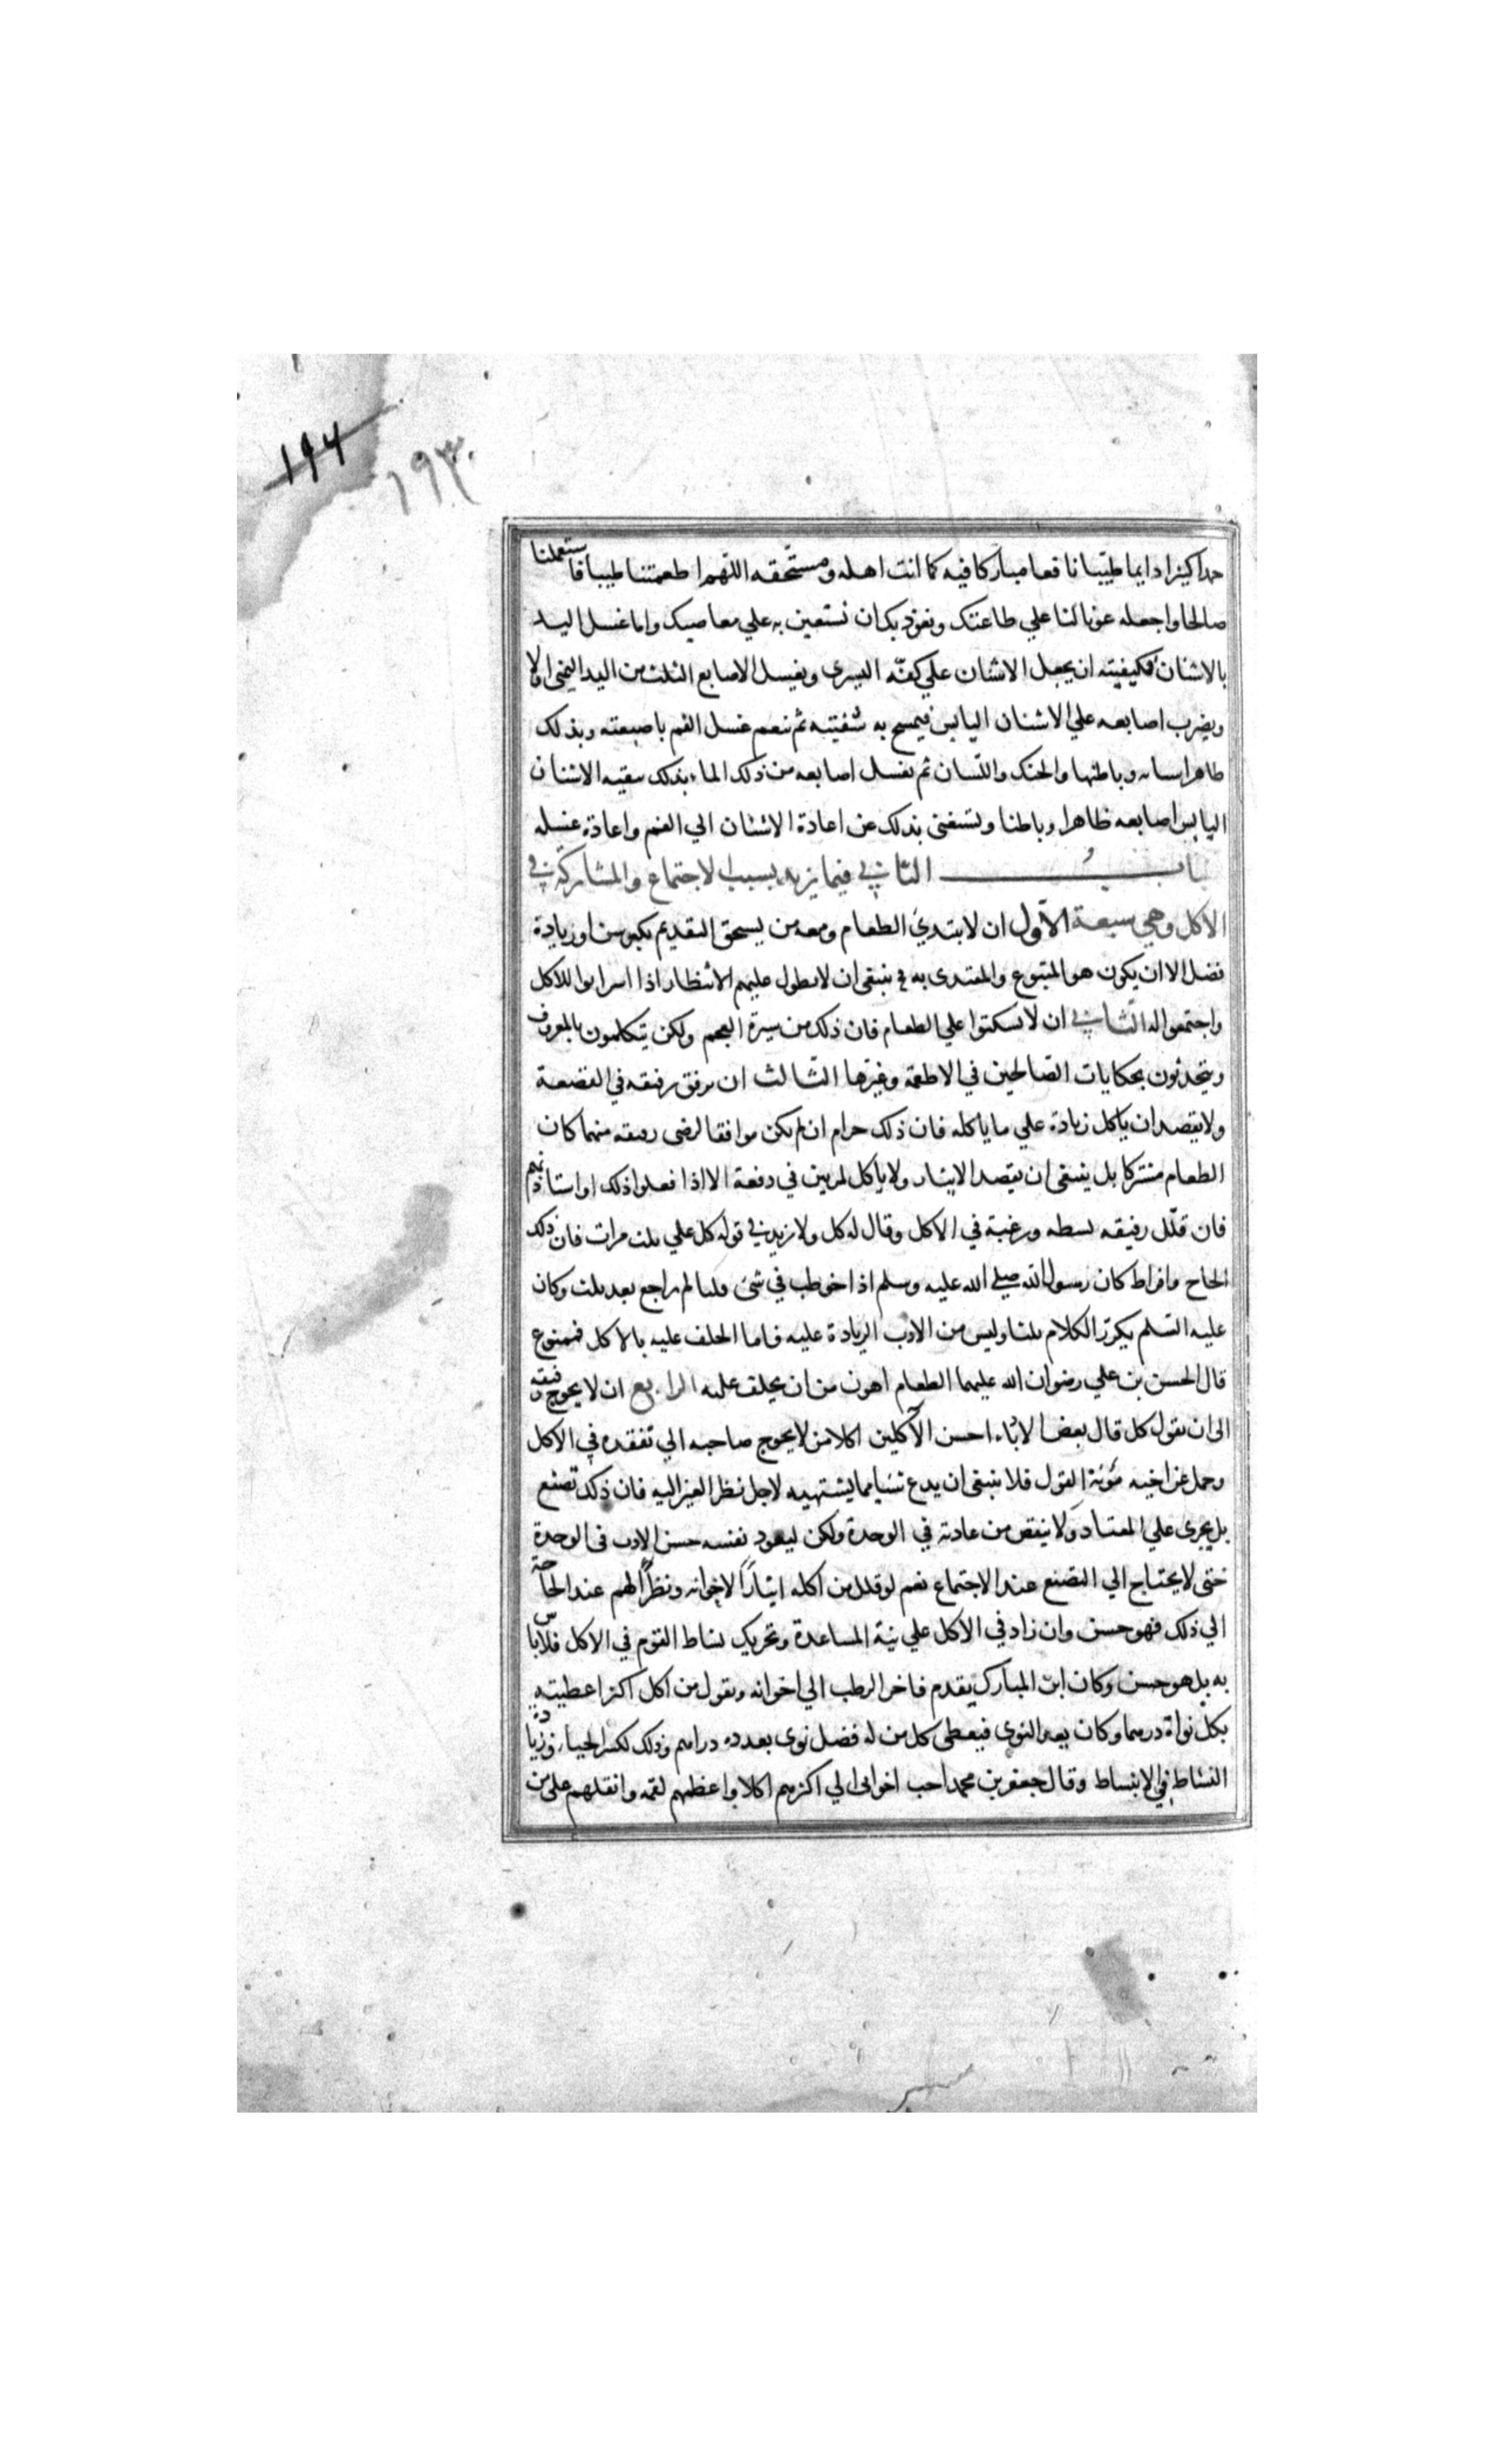 ١٩٤
١٩٣
حمدا كثيرا دايما طيبا نافعا مباركا فيه كما انت اهله ومستحقه اللهم اطعمتنا طيبا فاستعملنا
صالحا واجعله عونا لنا علي طاعتك ونعوذ بك ان نستعين به علي معاصيك واما غسل اليد
بالاشنان فكيفيته ان يجعل الاشنان علي كفه اليسرى ويغسل الاصابع الثلث من اليد اليمنى اولا
ويضرب اصابعه علي الاشنان اليابس فيمسح به شفتيه ثم ينعم غسل الفم باصبعته وبذلك
ظاهر اسنانه وباطنها والحنك واللسان ثم يغسل اصابعه من ذلك الماء بذلك بقيه الاشنان
اليابس اصابعه ظاهرا وباطنا ويستغنى بذلك عن اعادة الاشنان الي الفم واعادة غسله
باب الثاني فيما يزيد بسبب الاجتماع والمشاركة في
الاكل وهي سبعة الاول ان لا يبتدئ الطعام ومعه من يستحق التقديم بكبر سن او زيادة
فضل الا ان يكون هو المتبوع والمقتدى به فح ينبغى ان لا يطول عليهم الانتظار اذا اسرابوا للاكل
واجتمعوا له الثاني ان لا يسكتوا علي الطعام فان ذلك من سيرة العجم ولكن يتكلمون بالمعروف
ويتحدثون بحكايات الصالحين في الاطعمة وغيرها الثالث ان يرفق برفيقه في القصعة
ولا يقصد ان ياكل زيادة علي ما ياكله فان ذلك حرام ان لم يكن موافقا لرضى رفيقه مهما كان
الطعام مشتركا بل ينبغى ان يقصد الايثار ولا ياكل تمرتين في دفعة الا اذا فعلوا ذلك او استاذنهم
فان قلل رفيقه بسطه ورغبه في الاكل وقال له كل ولا يزيد في قوله كل علي ثلث مرات فان ذلك
الحاح وافراط كان رسول الله صلي الله عليه وسلم اذا خوطب في شئ ثلثا لم يراجع بعد ثلث وكان
عليه السلم يكرر الكلام ثلثا وليس من الادب الزيادة عليه فاما الحلف عليه بالاكل فممنوع
قال الحسن بن علي رضوان الله عليهما الطعام اهون من ان يحلف عليه الرابع ان لا يحوج رفيقه
الى ان يقول كل قال بعض الادباء احسن الآكلين اكلا من لا يحوج صاحبه الي تفقده في الاكل
وحمل عن اخيه مؤنة القول فلا ينبغى ان يدع شيئا مما يشتهيه لاجل نظر الغير اليه فان ذلك تصنع
بل يجرى علي المعتاد ولا ينقص من عادته في الوحدة ولكن ليعود نفسه حسن الادب في الوحدة
حتى لا يحتاج الي التصنع عند الاجتماع نعم لو قلل من اكله ايثارًا لاخوانه ونظرًا لهم عند الحاجة
الي ذلك فهو حسن وان زاد في الاكل علي نية المساعدة وتحريك نشاط القوم في الاكل فلا باس
به بل هو حسن وكان ابن المبارك يقدم فاخر الرطب الي اخوانه ويقول من اكل اكثر اعطيته
بكل نواة درهما وكان يعد النوى فيعطى كل من له فضل نوى بعدده دراهم وذلك لكسر الحياء وزيادة
النشاط في الانبساط وقال جعفر بن محمد احب اخوانى الي اكثرهم اكلا واعظمهم لقمه واثقلهم على من